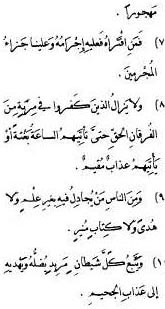 مهجوراً .
٧) فَمَن افْتَراهُ فَعَليهِ إجْرامُهُ وعَلينا جَزاءُ
المُجرمين .
٨) ولا يَزالُ الذينَ كَفَروا في مِريةٍ مِنَ
الفُرقانِ الحَقِّ حتَّى تَأتيَهُم الساعةُ بَغْتةً أوْ
يَأتيَهُم عَذابٌ مُقيمٌ .
٩) ومِنَ الناسِ مَنْ يُجادِلُ فيهِ بِغيرِ عِلْمٍ ولا
هُدىً ولا كِتابٍ مُنيرٍ .
١٠) ويَتَّبِعُ كُلَّ شَيطانٍ مَريدٍ يُضِلُّهُ ويَهديهِ
إلى عَذابِ الجَحيمِ .